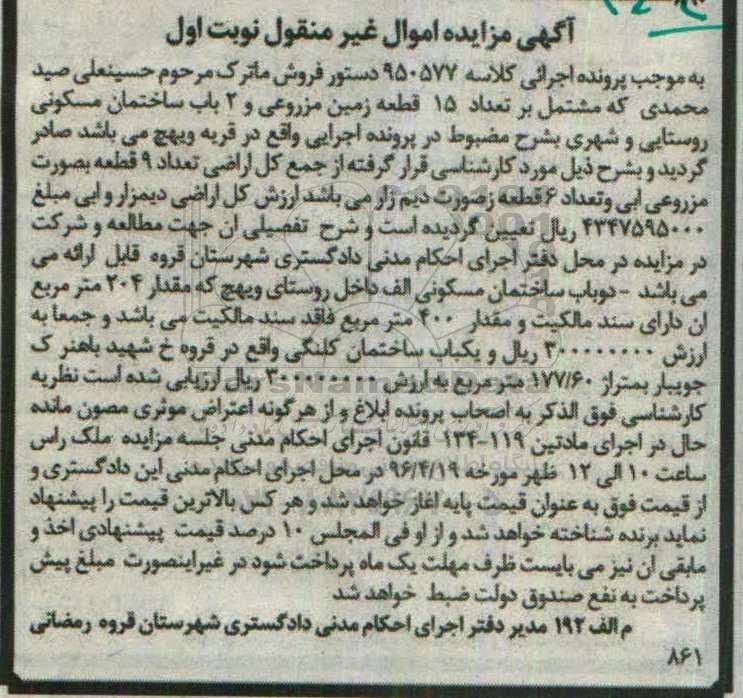 آگهی مزایده اموال غیر منقول نوبت اول
به موجب پرونده اجرائی کلاسه ۹۵۰۵۷۷ دستور فروش ماترک مرحوم حسینعلی صید
محمدی که مشتمل بر تعداد ۱۵ قطعه زمین مزروعی و ۲ باب ساختمان مسکونی
روستایی و شهری بشرح مضبوط در پرونده اجرایی واقع در قریه ویهج می باشد صادر
گردید و بشرح ذیل مورد کارشناسی قرار گرفته از جمع کل اراضی تعداد ۹ قطعه بصورت
مزروعی ابی وتعداد ۶ قطعه زصورت دیم زار می باشد ارزش کل اراضی دیمزار و ابی مبلغ
۴۳۴۷۵۹۵۰۰۰ ریال تعیین گردیده است و شرح تفصیلی ان جهت مطالعه و شرکت
در مزایده در محل دفتر اجرای احکام مدنی دادگستری شهرستان قروه قابل ارائه می
می باشد - دوباب ساختمان مسکونی الف داخل روستای ویهج که مقدار ۲۰۴ متر مربع
ان دارای سند مالکیت و مقدار ۴۰۰ متر مربع فاقد سند مالکیت می باشد و جمعا به
ارزش ۳۰۰۰۰۰۰۰۰ ریال و یکباب ساختمان کلنگی واقع در قروه خ شهید باهنر ک
جویبار بمتراژ ۱۷۷/۶۰ متر مربع به ارزش ریال ارزیابی شده است نظریه
کارشناسی فوق الذکر به اصحاب پرونده ابلاغ و از هرگونه اعتراض موثری مصون مانده
حال در اجرای مادتین ۱۱۹-۱۳۴ قانون اجرای احکام مدنی جلسه مزایده ملک راس
ساعت ۱۰ الی ۱۲ ظهر مورخه ۹۶/۴/۱۹ در محل اجرای احکام مدنی این دادگستری و
از قیمت فوق به عنوان قیمت پایه اغاز خواهد شد و هر کس بالاترین قیمت را پیشنهاد
نماید برنده شناخته خواهد شد و از او فی المجلس ۱۰ درصد قیمت پیشنهادی اخذ و
مابقی ان نیز می بایست ظرف مهلت یک ماه پرداخت شود در غیراینصورت مبلغ پیش
پرداخت به نفع صندوق دولت ضبط خواهد شد
م الف ۱۹۲ مدیر دفتر اجرای احکام مدنی دادگستری شهرستان قروه رمضانی
۸۶۱